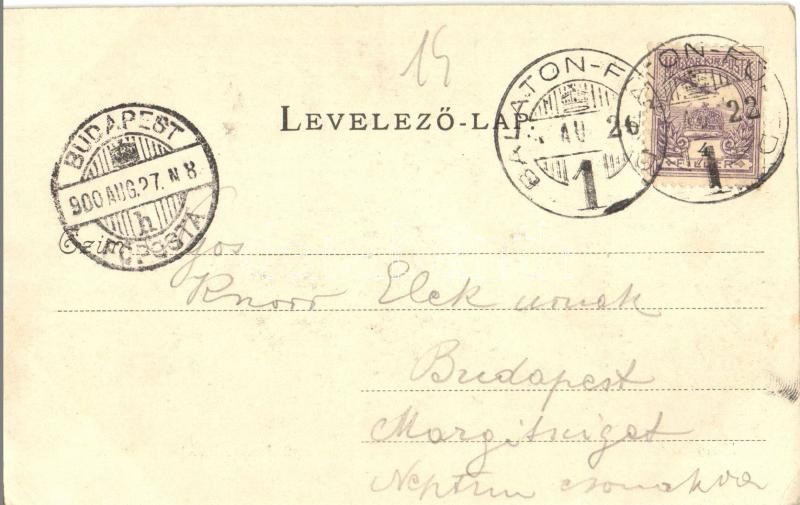 15
LEVELEZŐ-LAP
BALATON-F
AU 26
1
BALATON-FÜ
22
1
MAGYAR KIR. POSTA
4
FILLÉR
BUDAPEST
900 AUG. 27. N 8
h
FŐPOSTA
Czím
Knorr Elek urnak
Budapest
Margitsziget
Neptun csonakda